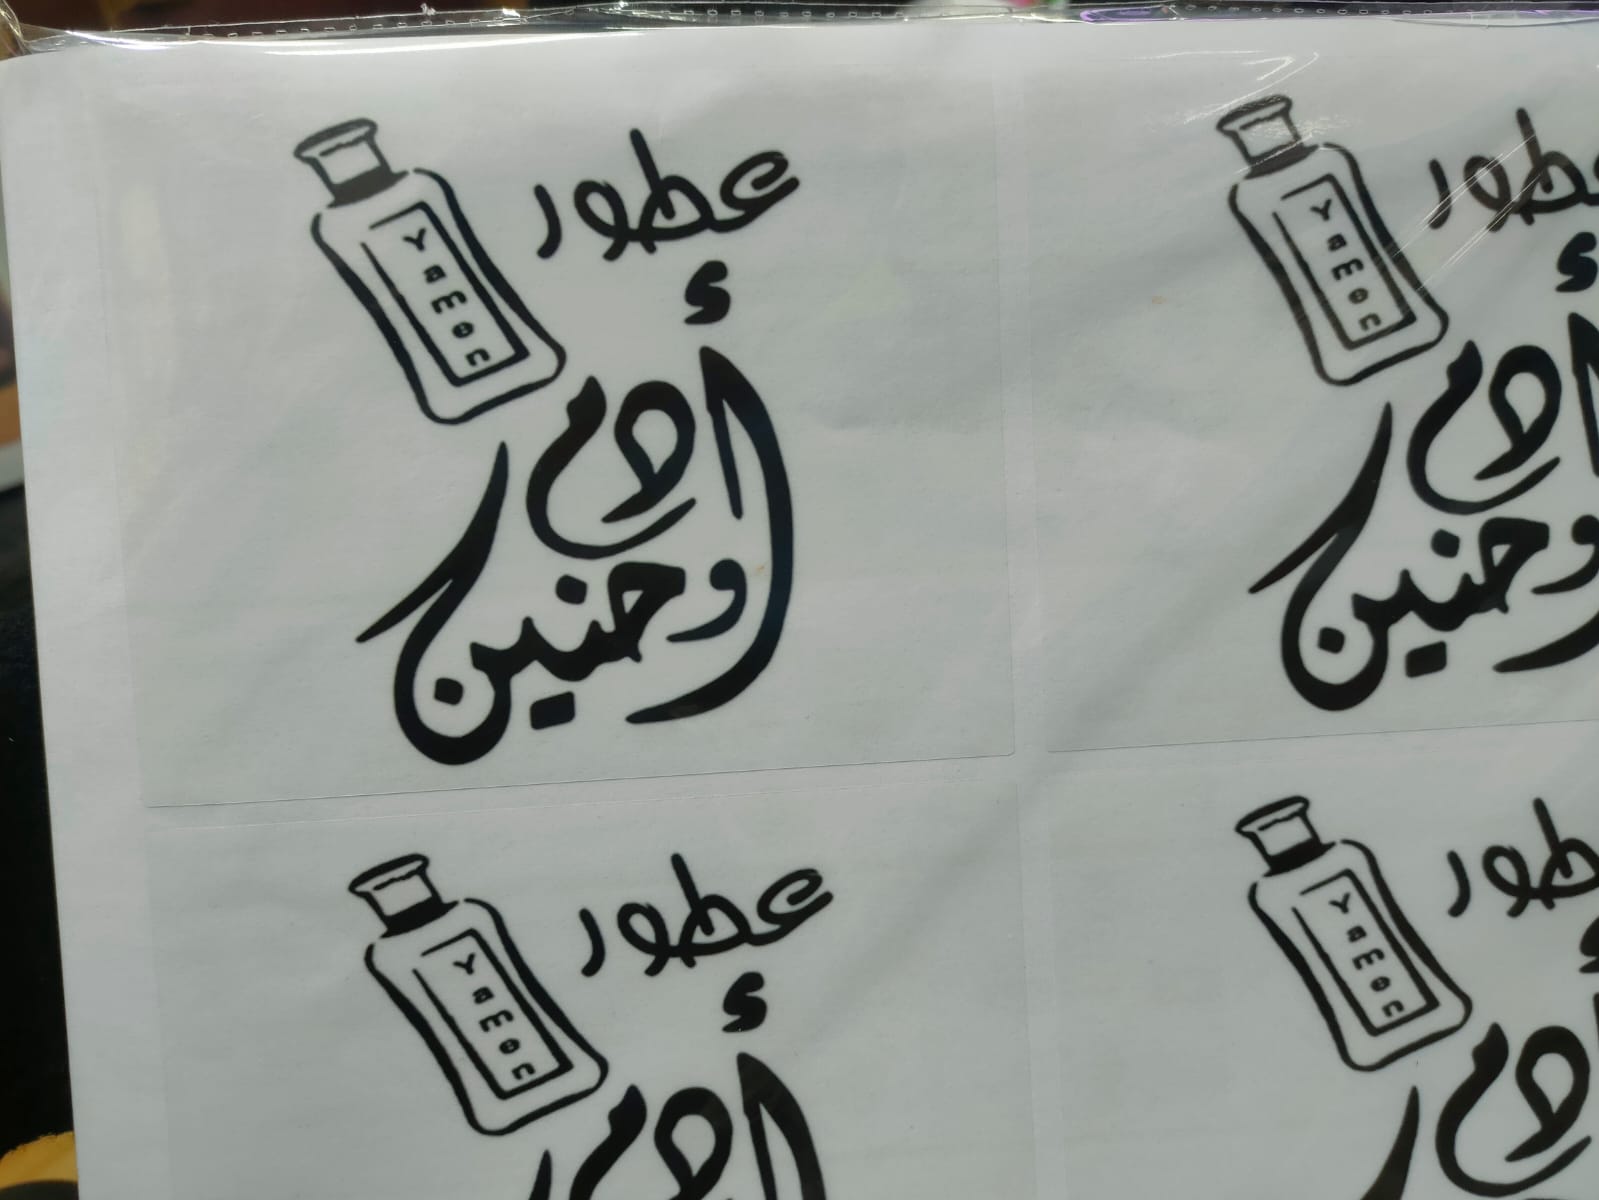 عطور
Yamen
أدم
وحنين
عطور
Yamen
أدم
وحنين
عطور
Yamen
أدم
عطور
Yamen
أدم